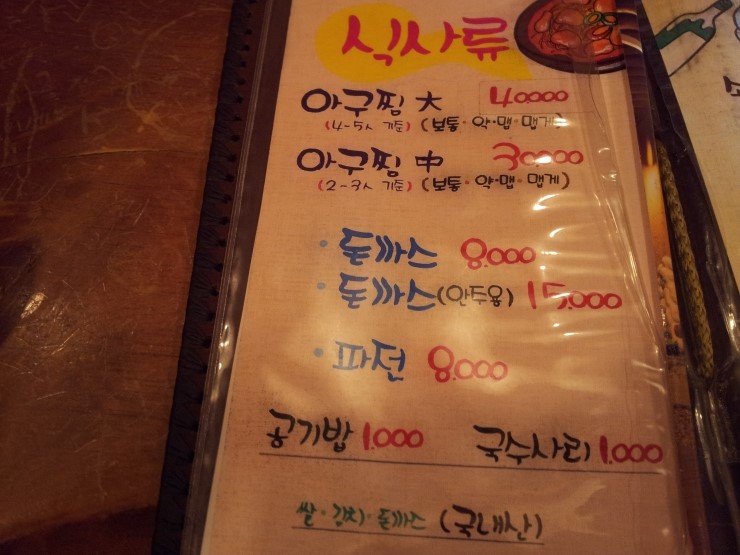 식사류
아구찜 大 40000
(4-5人 기준) (보통·약·맵·맵게)
아구찜 中 30000
(2-3人 기준) (보통·약·맵·맵게)
· 돈까스 8.000
· 돈까스(안주용) 15.000
· 파전 8.000
공기밥 1.000 국수사리 1.000
쌀·김치·돈까스 (국내산)